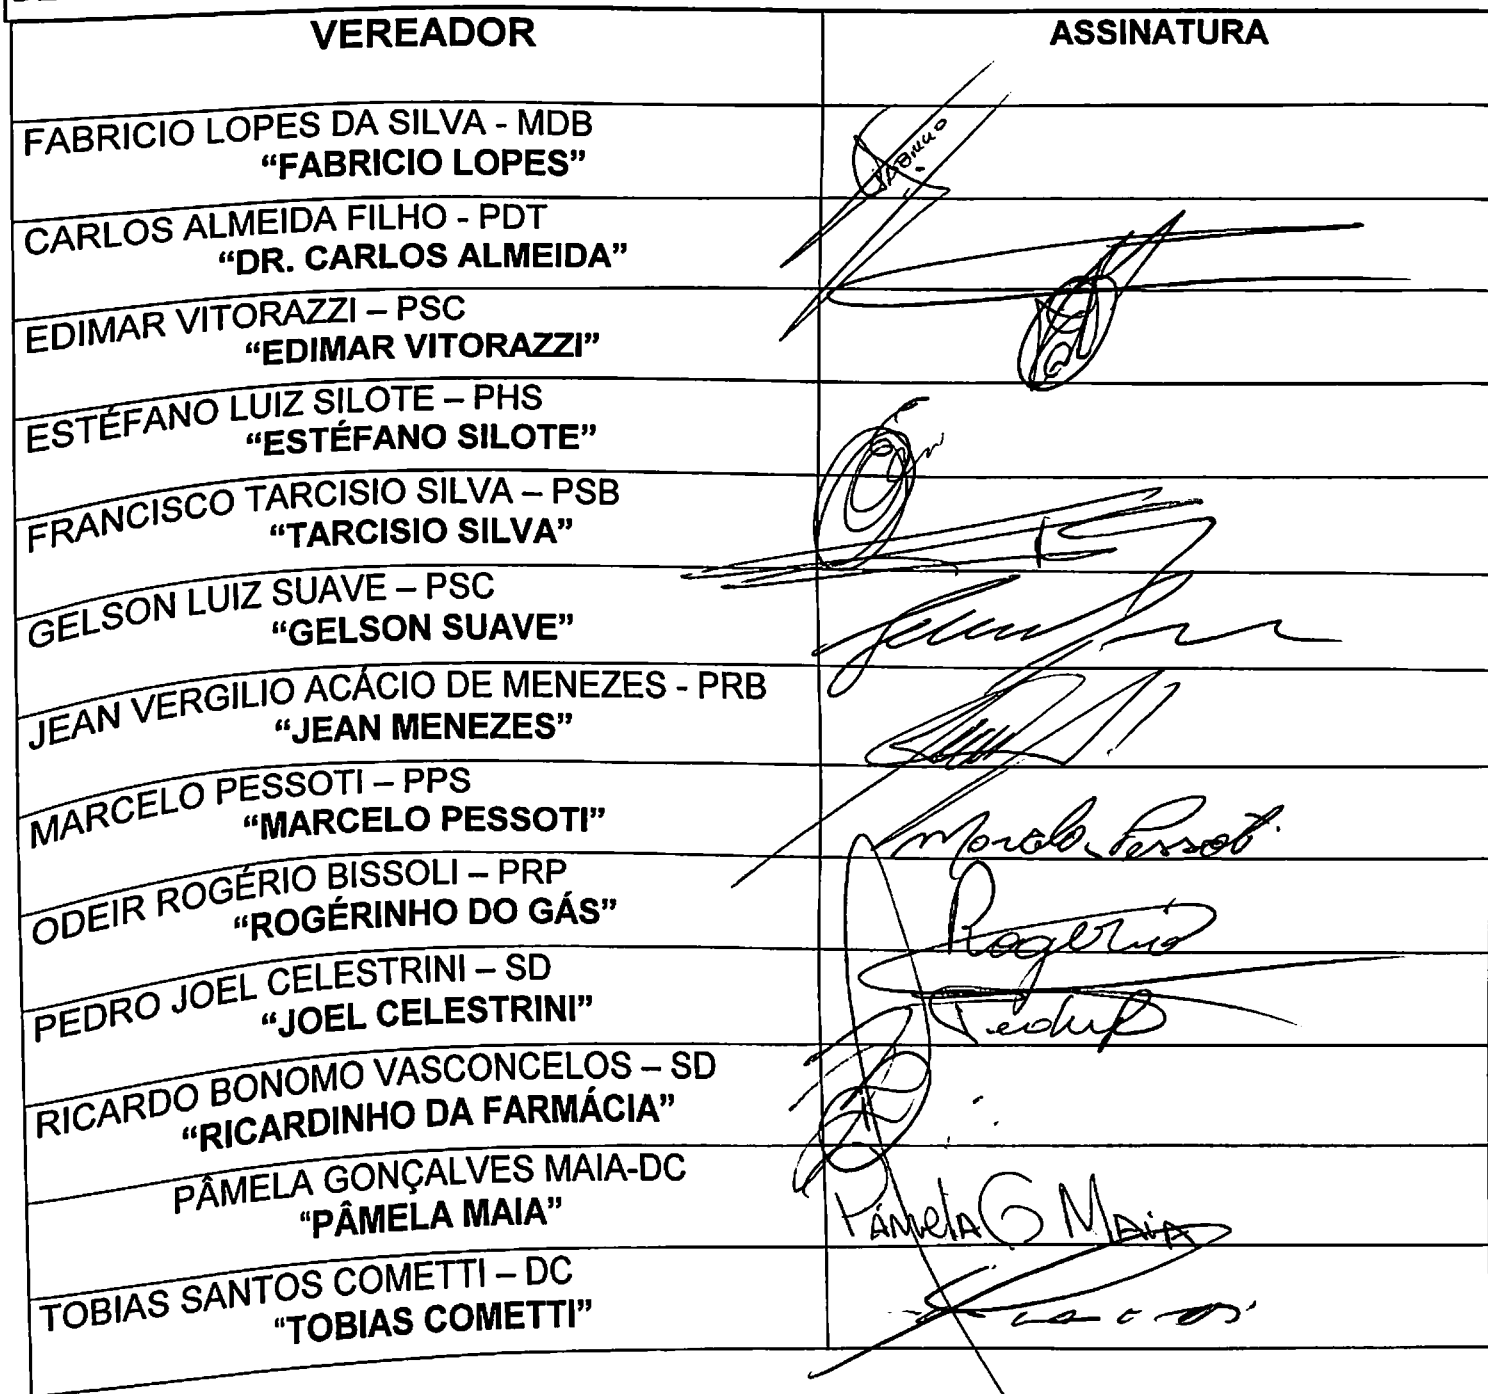 VEREADOR
ASSINATURA
FABRICIO LOPES DA SILVA - MDB
“FABRICIO LOPES”
CARLOS ALMEIDA FILHO - PDT
“DR. CARLOS ALMEIDA”
EDIMAR VITORAZZI – PSC
“EDIMAR VITORAZZI”
ESTÉFANO LUIZ SILOTE – PHS
“ESTÉFANO SILOTE”
FRANCISCO TARCISIO SILVA – PSB
“TARCISIO SILVA”
GELSON LUIZ SUAVE – PSC
“GELSON SUAVE”
JEAN VERGILIO ACÁCIO DE MENEZES - PRB
“JEAN MENEZES”
MARCELO PESSOTI – PPS
“MARCELO PESSOTI”
Marcelo Pessoti
ODEIR ROGÉRIO BISSOLI – PRP
“ROGÉRINHO DO GÁS”
Rogério
PEDRO JOEL CELESTRINI – SD
“JOEL CELESTRINI”
RICARDO BONOMO VASCONCELOS – SD
“RICARDINHO DA FARMÁCIA”
PÂMELA GONÇALVES MAIA-DC
“PÂMELA MAIA”
PÂMELA G MAIA
TOBIAS SANTOS COMETTI – DC
“TOBIAS COMETTI”